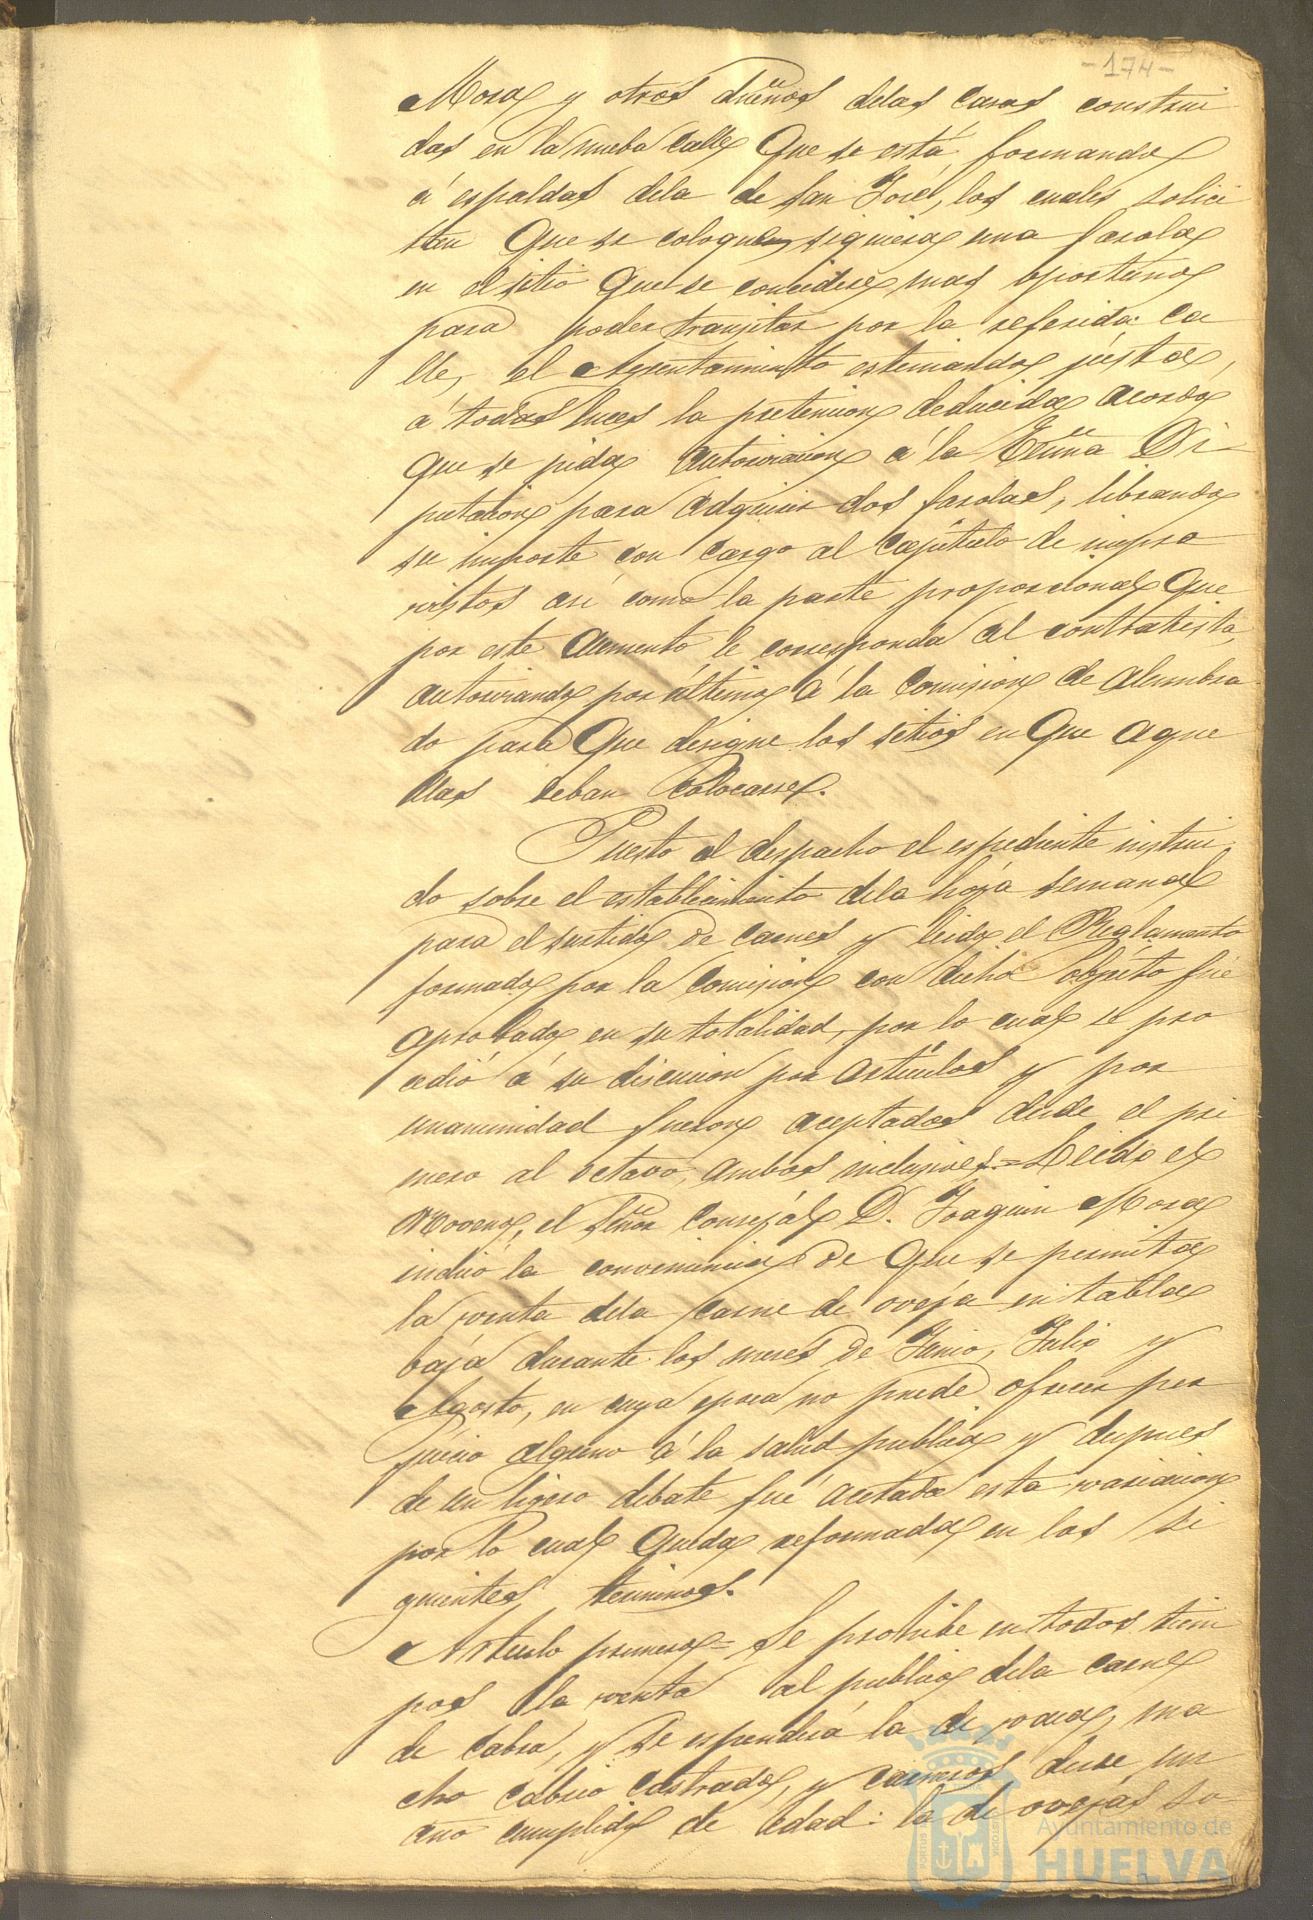 -174-
Mora y otros dueños delas casas construi
das en la nueba calle que se está formando
á espaldas dela de San José, los cuales solici
tan que se coloque siquiera una farola
en el sitio que se concidere mas oportuno
para poder transitar por la referida ca
lle, el Ayuntamiento estimando justa,
á todas luces la pretencion deducida acordó
que se pida autorizacion á la Exma Di-
putacion para adquirir dos farolas, librando
su importe con cargo al capitulo de impre
vistos asi como la parte proporcional que
por este aumento le corresponda al contratista
autorizando por último á la Comision de alumbra
do para que designe los sitios en que aque
llas deban colocarse.
Puesto al despacho el espediente instrui
do sobre el establecimiento dela hoja semanal
para el surtido de carnes y leido el Reglamento
formado por la Comision con dicho objeto fué
aprobado en su totalidad, por lo cual se pro
cedió á su discucion por articulos y por
unanimidad fueron aceptados desde el pri
mero al octavo, ambos inclusives.= Leido el
Noveno, el Señor Consejál D. Joaquin Mora
indicó la conveniencia de que se permita
la venta dela carne de oveja en tabla
baja durante los meses de Junio, Julio y
Agosto, en cuya epoca no puede ofrecer per
juicio alguno á la salud publica y despues
de un ligero debate fué acetada esta variacion
por lo cual queda reformada en los si
guientes terminos.
Articulo primero= Se prohibe en todos tiem
pos la venta al publico dela carne
de cabra, y se espenderá la de vaca, ma
cho cabrio castrado, y carneros desde un
año cumplido de edad: la de ovejas so-
Ayuntamiento de
HUELVA